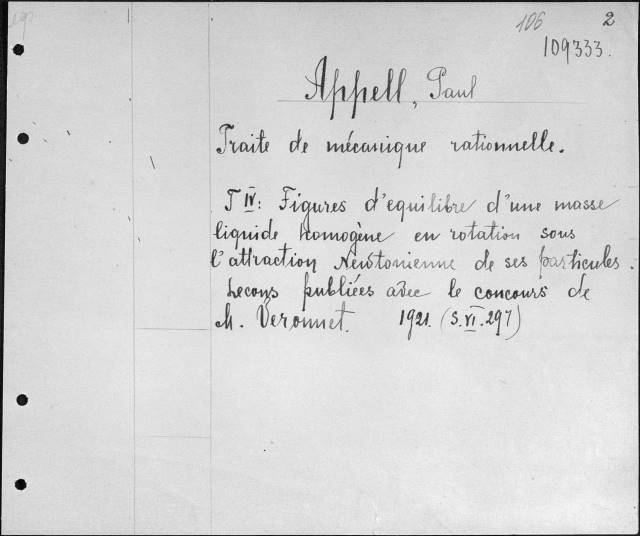 106 2
109333.
Appell, Paul
Traite de mécanique rationnelle.
T IV: Figures d'equilibre d'une masse
liquide homogène en rotation sous
l'attraction Newtonienne de ses particules.
Lecons publiées avec le concours de
M. Veronnet. 1921. (S.VI.297)